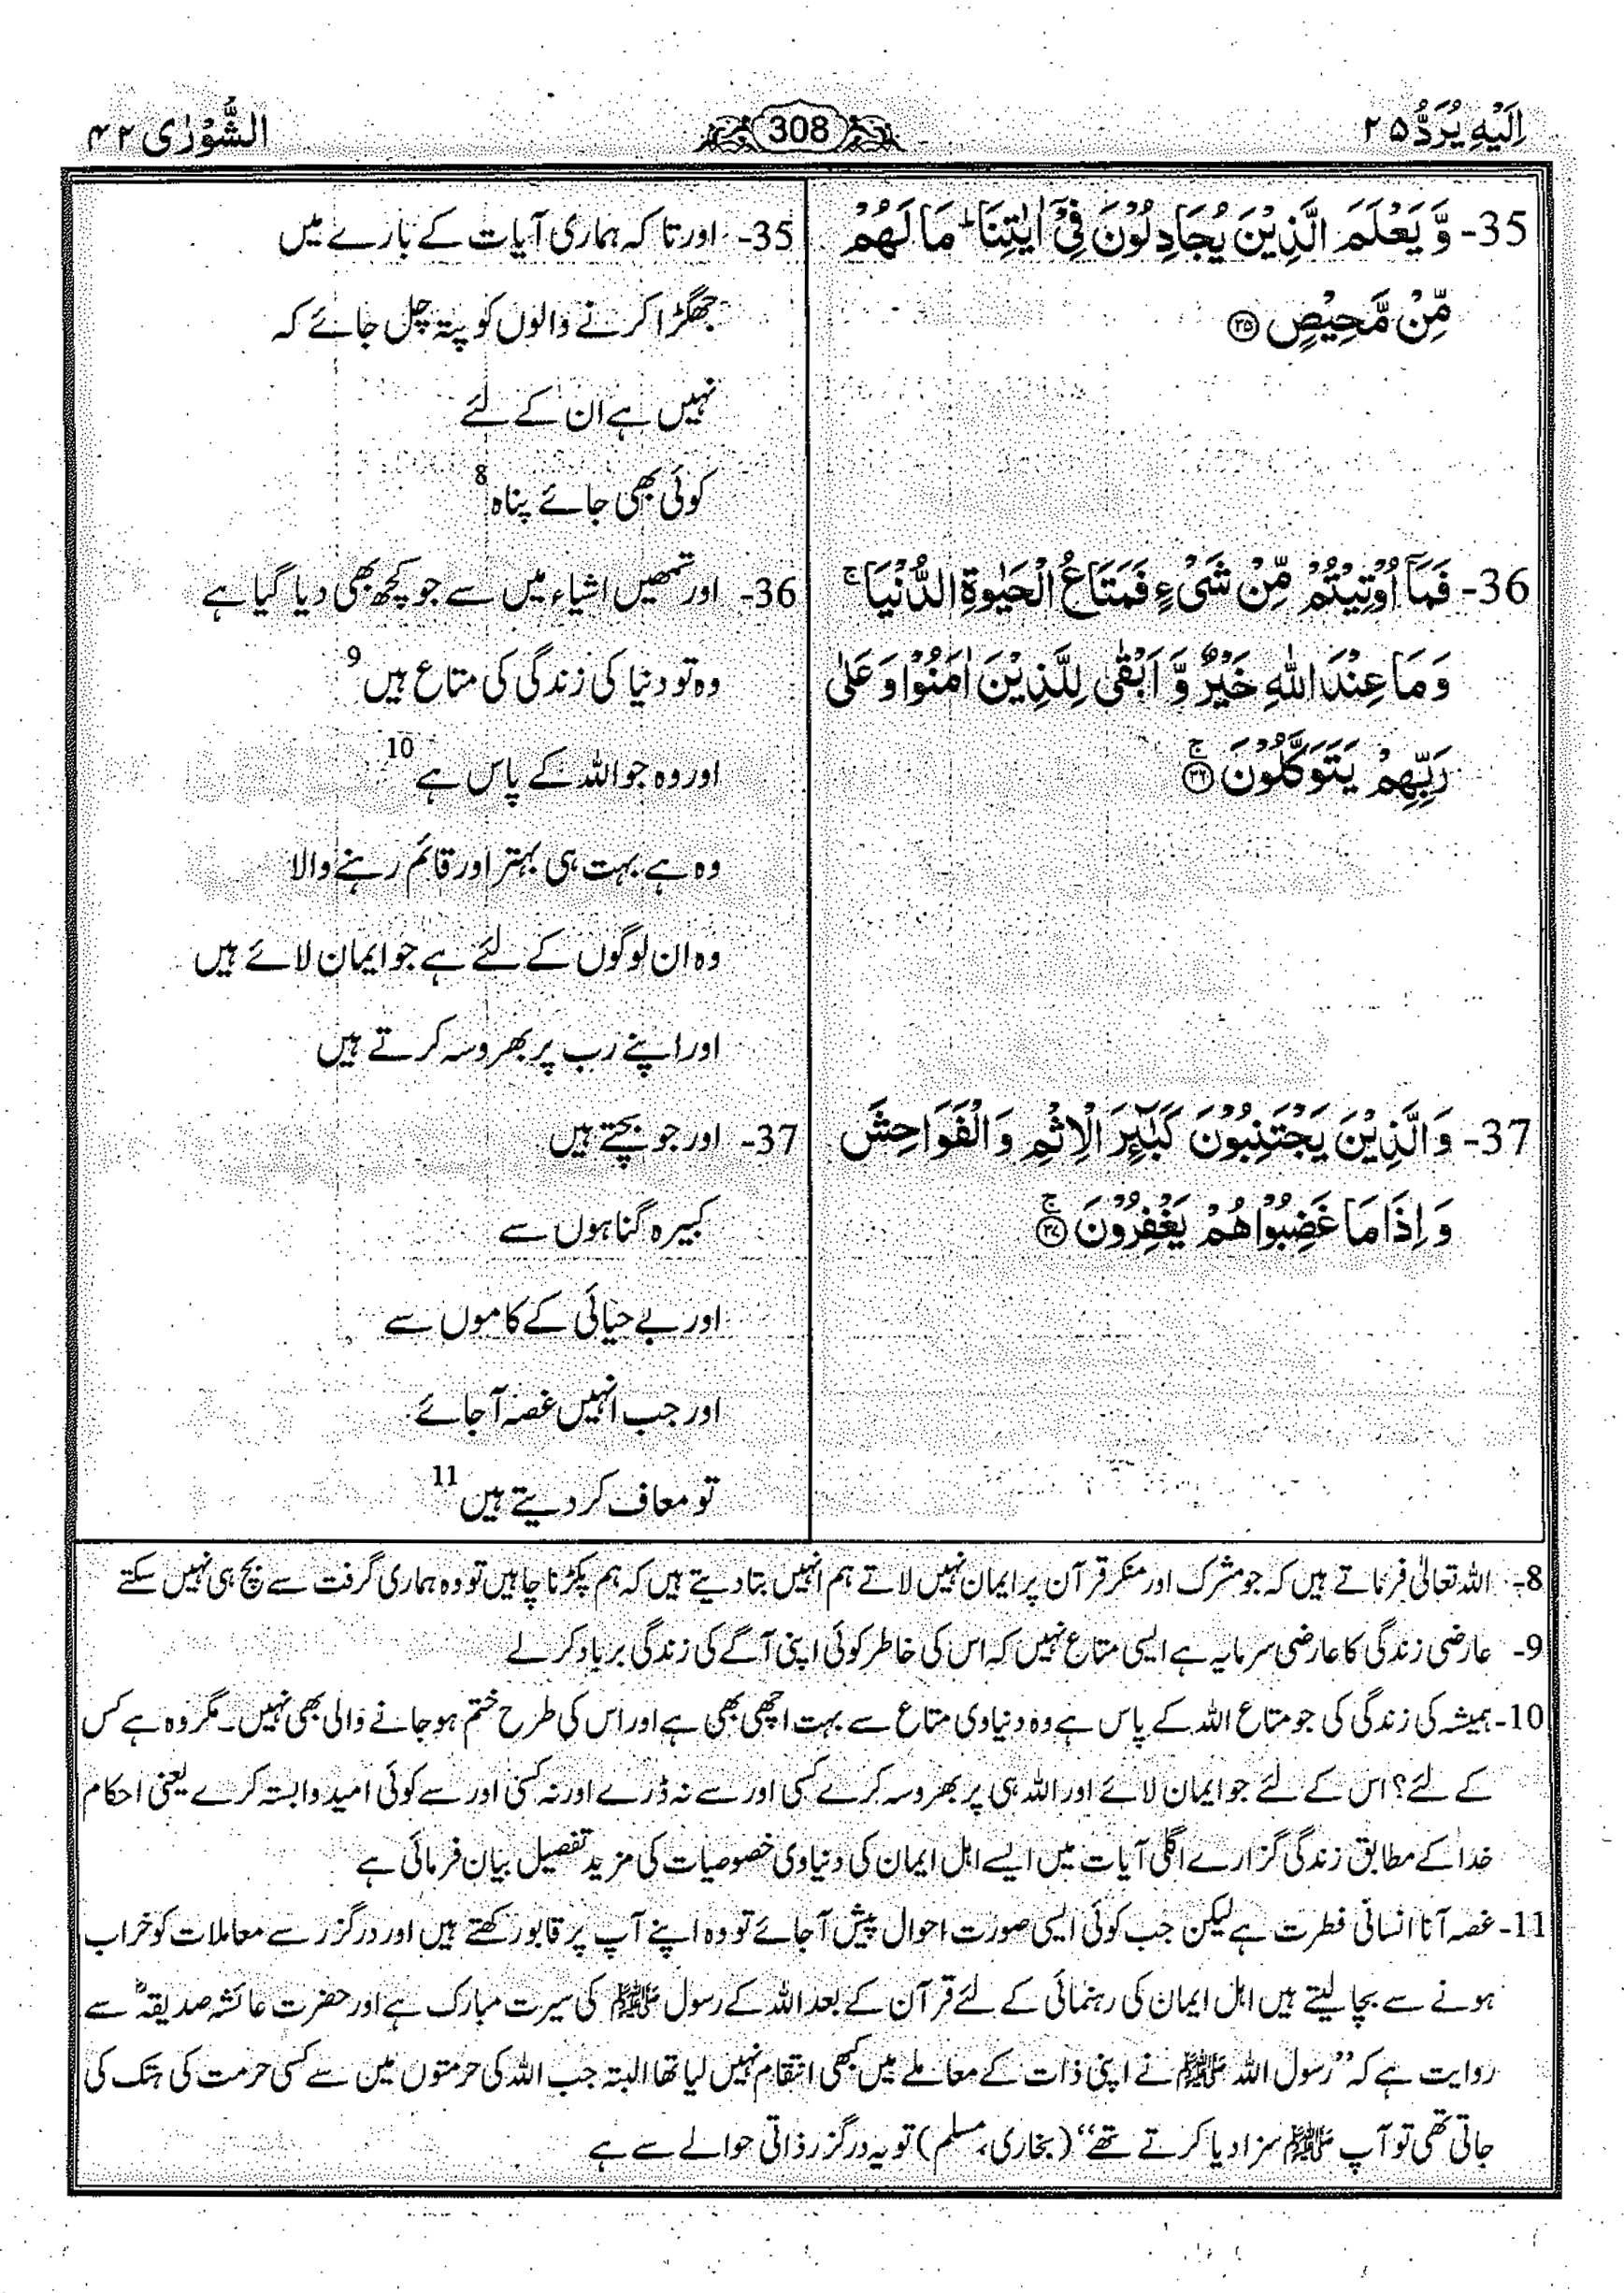 اِلَیْهِ یُرَدُّ ۲۵
308
الشُّوْرٰی ۴۲
35- وَّ یَعْلَمَ الَّذِیْنَ یُجَادِلُوْنَ فِیْۤ اٰیٰتِنَا ؕ مَا لَهُمْ
مِّنْ مَّحِیْصٍ ۝۳۵
36- فَمَاۤ اُوْتِیْتُمْ مِّنْ شَیْءٍ فَمَتَاعُ الْحَیٰوةِ الدُّنْیَا ۚ
وَ مَا عِنْدَ اللّٰهِ خَیْرٌ وَّ اَبْقٰی لِلَّذِیْنَ اٰمَنُوْا وَ عَلٰی
رَبِّهِمْ یَتَوَكَّلُوْنَ ۝۳۶ۚ
37- وَ الَّذِیْنَ یَجْتَنِبُوْنَ كَبٰٓىِٕرَ الْاِثْمِ وَ الْفَوَاحِشَ
وَ اِذَا مَا غَضِبُوْا هُمْ یَغْفِرُوْنَ ۝۳۷ۚ
35- اور تا کہ ہماری آیات کے بارے میں
جھگڑا کرنے والوں کو پتہ چل جائے کہ
نہیں ہے ان کے لئے
کوئی بھی جائے پناہ 8
36- اور تمھیں اشیاء میں سے جو کچھ بھی دیا گیا ہے
وہ تو دنیا کی زندگی کی متاع ہیں 9
اور وہ جو اللہ کے پاس ہے 10
وہ ہے بہت ہی بہتر اور قائم رہنے والا
وہ ان لوگوں کے لئے ہے جو ایمان لائے ہیں
اور اپنے رب پر بھروسہ کرتے ہیں
37- اور جو بچتے ہیں
کبیرہ گناہوں سے
اور بے حیائی کے کاموں سے
اور جب انہیں غصہ آجائے
تو معاف کر دیتے ہیں 11
8- اللہ تعالیٰ فرماتے ہیں کہ جو مشرک اور منکر قرآن پر ایمان نہیں لاتے ہم انہیں بتا دیتے ہیں کہ ہم پکڑنا چاہیں تو وہ ہماری گرفت سے بچ ہی نہیں سکتے
9- عارضی زندگی کا عارضی سرمایہ ہے ایسی متاع نہیں کہ اس کی خاطر کوئی اپنی آگے کی زندگی برباد کر لے
10- ہمیشہ کی زندگی کی جو متاع اللہ کے پاس ہے وہ دنیاوی متاع سے بہت اچھی بھی ہے اور اس کی طرح ختم ہو جانے والی بھی نہیں۔ مگر وہ ہے کس
کے لئے؟ اس کے لئے جو ایمان لائے اور اللہ ہی پر بھروسہ کرے کسی اور سے نہ ڈرے اور نہ کسی اور سے کوئی امید وابستہ کرے یعنی احکام
خدا کے مطابق زندگی گزارے اگلی آیات میں ایسے اہل ایمان کی دنیاوی خصوصیات کی مزید تفصیل بیان فرمائی ہے
11- غصہ آنا انسانی فطرت ہے لیکن جب کوئی ایسی صورت احوال پیش آجائے تو وہ اپنے آپ پر قابو رکھتے ہیں اور درگزر سے معاملات کو خراب
ہونے سے بچا لیتے ہیں اہل ایمان کی رہنمائی کے لئے قرآن کے بعد اللہ کے رسول ﷺ کی سیرت مبارک ہے اور حضرت عائشہ صدیقہؓ سے
روایت ہے کہ ’’رسول اللہ ﷺ نے اپنی ذات کے معاملے میں کبھی انتقام نہیں لیا تھا البتہ جب اللہ کی حرمتوں میں سے کسی حرمت کی ہتک کی
جاتی تھی تو آپ ﷺ سزا دیا کرتے تھے‘‘ (بخاری، مسلم) تو یہ درگزر ذاتی حوالے سے ہے